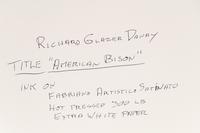 Richard Glazer Danay
Title "American Bison"
Ink on
Fabriano Artistico Satinato
Hot Pressed 300 lb
Extra White Paper